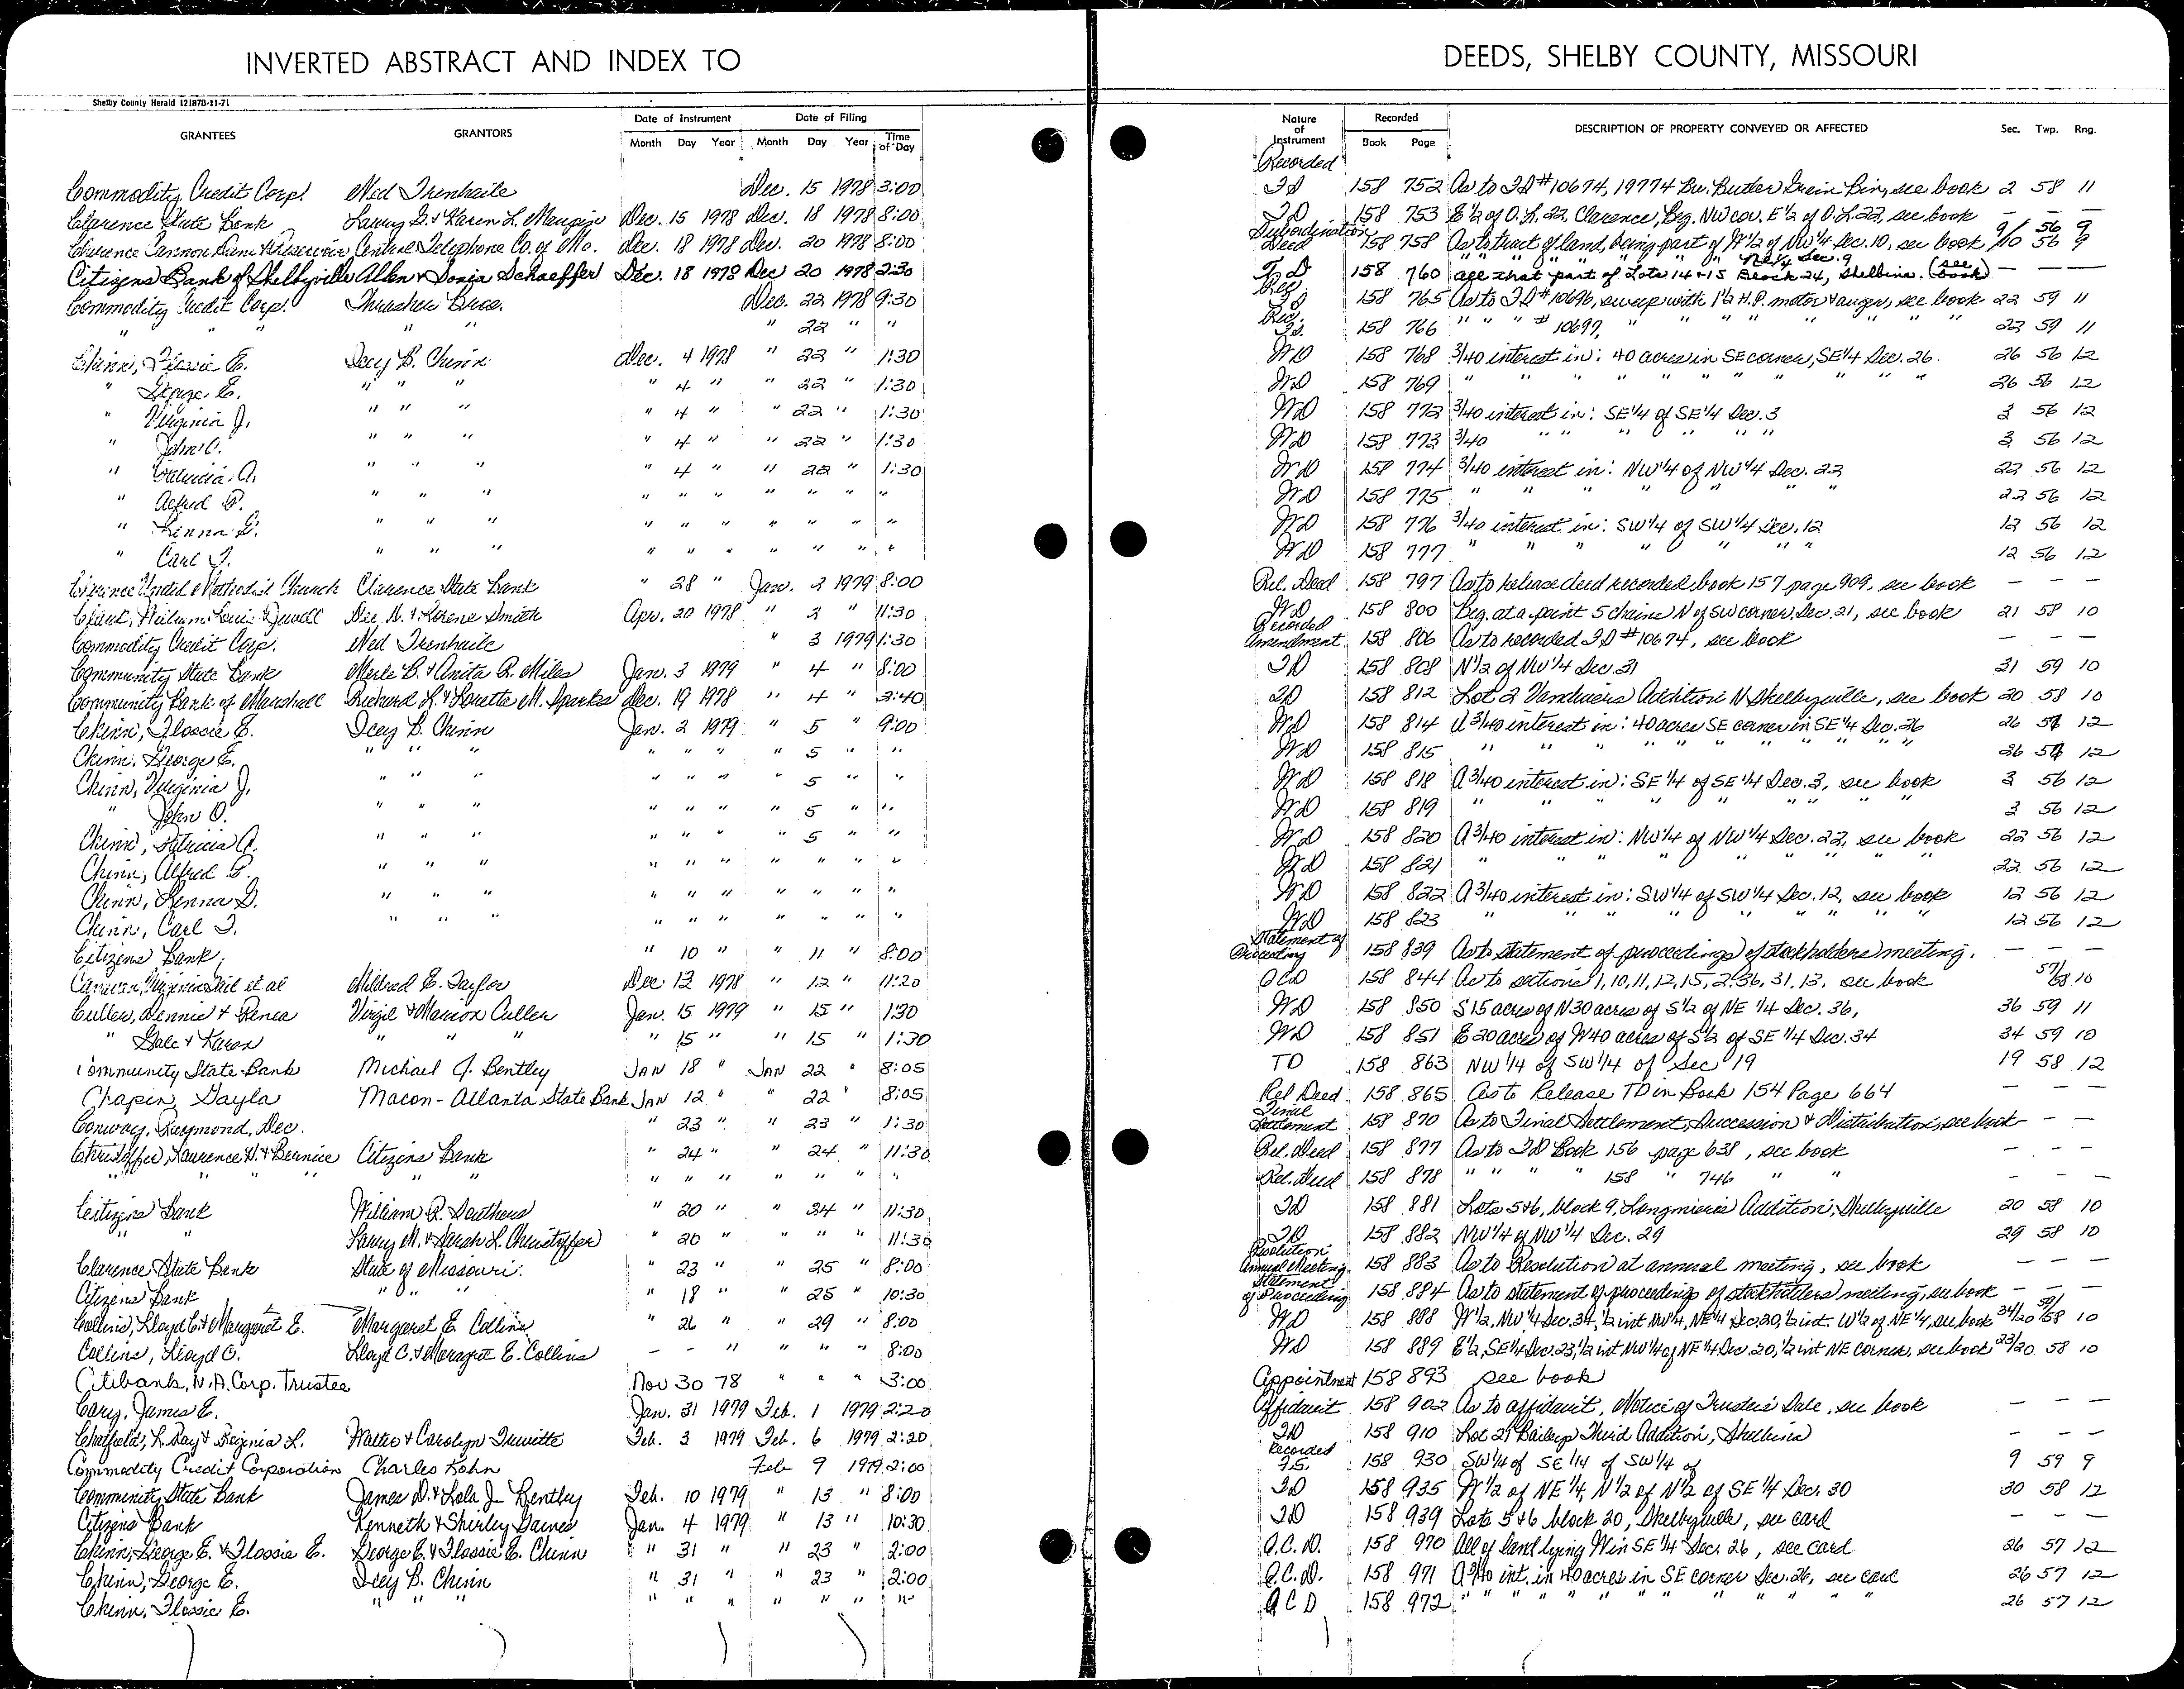 INVERTED ABSTRACT AND INDEX TO DEEDS, SHELBY COUNTY, MISSOURI
Shelby County Herald 121878-11-71
Date of Instrument Date of Filing Nature of Instrument Recorded
GRANTEES GRANTORS Month Day Year Month Day Year Time of Day Book Page DESCRIPTION OF PROPERTY CONVEYED OR AFFECTED Sec. Twp. Rng.
Recorded
Commodity Credit Corp. Ned Trenhaile Dec. 15 1978 3:00 TD 158 752 As to TD #10674, 19774 Bu. Butler Grain Bin, see book 2 58 11
Clarence State Bank Larry G. & Karen L. Maupin Dec. 15 1978 Dec. 18 1978 8:00 TD 158 753 E 1/2 of O.L. 22, Clarence, Beg. NW cor. E 1/2 of O.L. 22, see book — — —
Clarence Cannon Dam & Reservoir Central Telephone Co. of Mo. Dec. 18 1978 Dec. 20 1978 8:00 Subordination Deed 158 758 As to tract of land, being part of W 1/2 of NW 1/4 Sec. 10, see book 9/10 56 9
" " " " " NE 1/4 Sec. 9 56 9
Citizens Bank of Shelbyville Allen & Sonja Schaeffer Dec. 18 1978 Dec 20 1978 2:30 T.D 158 760 all that part of Lots 14 & 15 Block 24, Shelbina. (see book) — — —
Commodity Credit Corp. Thrasher Bros. Dec. 22 1978 9:30 Rec. TD 158 765 As to TD #10696, sweep with 1 1/2 H.P. motor & auger, see book 22 59 11
" " " " " " 22 " " Rec. TD. 158 766 " " " # 10697, " " " " " " " " 22 59 11
Chinn, Flossie E. Icey B. Chinn Dec. 4 1978 " 22 " 1:30 WD 158 768 3/40 interest in: 40 acres in SE corner, SE 1/4 Sec. 26. 26 56 12
" George E. " " " " 4 " " 22 " 1:30 WD 158 769 " " " " " " " " " 26 56 12
" Virginia J. " " " " 4 " " 22 " 1:30 WD 158 772 3/40 interest in: SE 1/4 of SE 1/4 Sec. 3 3 56 12
" John O. " " " " 4 " " 22 " 1:30 WD 158 773 3/40 " " " " " " 3 56 12
" Patricia A. " " " " 4 " " 22 " 1:30 WD 158 774 3/40 interest in: NW 1/4 of NW 1/4 Sec. 22 22 56 12
" Alfred P. " " " " " " " " " " WD 158 775 " " " " " " " 22 56 12
" Lenna D. " " " " " " " " " " WD 158 776 3/40 interest in: SW 1/4 of SW 1/4 Sec. 12 12 56 12
" Carl T. " " " " " " " " " " WD 158 777 " " " " " " " 12 56 12
Clarence United Methodist Church Clarence State Bank " 28 " Jan. 2 1979 8:00 Rel. Deed 158 797 As to release deed recorded book 157 page 909, see book — — —
Dee N. & Lorene Smith Apr. 20 1978 " 2 " 11:30 WD 158 800 Beg. at a point 5 chains N of SW corner, Sec. 21, see book 21 58 10
Commodity Credit Corp. Ned Trenhaile " 3 1979 1:30 Recorded Amendment 158 806 As to recorded TD #10674, see book — — —
Community State Bank Merle B. & Anita R. Miles Jan. 3 1979 " 4 " 8:00 TD 158 808 N 1/2 of NW 1/4 Sec. 31 31 59 10
Community Bank of Marshall Richard L. & Loretta M. Sparks Dec. 19 1978 " 4 " 2:40 TD 158 812 Lot 2 Vandivers Addition N Shelbyville, see book 20 58 10
Chinn, Flossie E. Icey B. Chinn Jan. 2 1979 " 5 " 9:00 WD 158 814 A 3/40 interest in: 40 acres SE corner in SE 1/4 Sec. 26 26 56 12
Chinn, George E. " " " " " " " 5 " " WD 158 815 " " " " " " " " 26 56 12
Chinn, Virginia J. " " " " " " " 5 " " WD 158 818 A 3/40 interest in: SE 1/4 of SE 1/4 Sec. 3, see book 3 56 12
" John O. " " " " " " " 5 " " WD 158 819 " " " " " " " " 3 56 12
Chinn, Patricia A. " " " " " " " 5 " " WD 158 820 A 3/40 interest in: NW 1/4 of NW 1/4 Sec. 22, see book 22 56 12
Chinn, Alfred P. " " " " " " " " " " WD 158 821 " " " " " " " " 22 56 12
Chinn, Lenna D. " " " " " " " " " " WD 158 822 A 3/40 interest in: SW 1/4 of SW 1/4 Sec. 12, see book 12 56 12
Chinn, Carl T. " " " " " " " " " " WD 158 823 " " " " " " " " 12 56 12
Citizens Bank " 10 " " 11 " 8:00 Statement of Proceeding 158 839 As to statement of proceedings of stockholders meeting. — — —
Virginia Gail et al Mildred E. Taylor Dec 13 1978 " 12 " 11:20 QCD 158 844 As to sections 1, 10, 11, 12, 15, 2, 36, 31, 13, see book 57/58 10
Culler, Dennis & Renea Virgil & Marion Culler Jan. 15 1979 " 15 " 1:30 WD 158 850 S 15 acres of N 30 acres of S 1/2 of NE 1/4 Sec. 36, 36 59 11
" Gale & Karen " " " " 15 " " 15 " 1:30 WD 158 851 E 20 acres of W 40 acres of S 1/2 of SE 1/4 Sec. 34 34 59 10
Community State Bank Michael J. Bentley JAN 18 " JAN 22 " 8:05 TD 158 863 NW 1/4 of SW 1/4 of Sec 19 19 58 12
Chapin, Gayla Macon-Atlanta State Bank JAN 12 " " 22 " 8:05 Rel Deed 158 865 As to Release TD in Book 154 Page 664 — — —
Conway, Raymond, Dec. " 23 " " 23 " 1:30 Final Settlement 158 870 As to Final Settlement, Succession & Distribution, see book — —
Christoffer, Laurence W. & Bernice Citizens Bank " 24 " " 24 " 11:30 Rel. Deed 158 877 As to TD Book 156 page 638, see book — — —
" " " " " " " " " " " " " Rel. Deed 158 878 " " " " 158 " 746 " " — — —
Citizens Bank William R. Southers " 20 " " 24 " 11:30 TD 158 881 Lots 5 & 6, block 9, Longmires Addition, Shelbyville 20 58 10
" " Larry M. & Sarah L. Christoffer " 20 " " " " 11:30 TD 158 882 NW 1/4 of NW 1/4 Sec. 29 29 58 10
Clarence State Bank State of Missouri. " 23 " " 25 " 8:00 Resolution Annual Meeting 158 883 As to Resolution at annual meeting, see book — — —
Citizens Bank " " " " 18 " " 25 " 10:30 Statement of Proceeding 158 884 As to statement of proceedings of stockholders meeting, see book — — —
Collins, Lloyd C. & Margaret E. Margaret E. Collins " 26 " " 29 " 8:00 WD 158 888 W 1/2, NW 1/4 Sec. 34, 1/2 int NW 1/4, NE 1/4 Sec. 20, 1/2 int. W 1/2 of NE 1/4, see book 34/20 59/58 10
Collins, Lloyd C. Lloyd C. & Margaret E. Collins — - " " " " 8:00 WD 158 889 E 1/2, SE 1/4 Sec. 23, 1/2 int NW 1/4 of NE 1/4 Sec. 20, 1/2 int NE corner, see book 23/20 58 10
Citibank, N.A. Corp. Trustee Nov 30 78 " " " 3:00 Appointment 158 893 see book
Cary, James E. Jan. 31 1979 Feb. 1 1979 2:20 Affidavit 158 902 As to affidavit, Notice of Trustee's Sale, see book — — —
Chatfield, L. Ray & Reginia L. Walter & Carolyn Truvitte Feb. 3 1979 Feb. 6 1979 2:20 TD 158 910 Lot 21 Baileys Third Addition, Shelbina — — —
Commodity Credit Corporation Charles Kohn Feb 9 1979 2:00 Recorded F.S. 158 930 SW 1/4 of SE 1/4 of SW 1/4 of 9 59 9
Community State Bank James D. & Lola J. Bentley Feb. 10 1979 " 13 " 8:00 TD 158 935 W 1/2 of NE 1/4, N 1/2 of N 1/2 of SE 1/4 Sec. 30 30 58 12
Citizens Bank Kenneth & Shirley Gaines Jan. 4 1979 " 13 " 10:30 TD 158 939 Lots 5 & 6 block 20, Shelbyville, see card — — —
Chinn, George E. & Flossie E. George E. & Flossie E. Chinn " 31 " " 23 " 2:00 Q.C.D. 158 970 All of land lying W in SE 1/4 Sec. 26, see card 26 57 12
Chinn, George E. Icey B. Chinn " 31 " " 23 " 2:00 Q.C.D. 158 971 A 3/40 int. in 40 acres in SE corner Sec. 26, see card 26 57 12
Chinn, Flossie E. " " " " " " " " " " QCD 158 972 " " " " " " " " " " 26 57 12